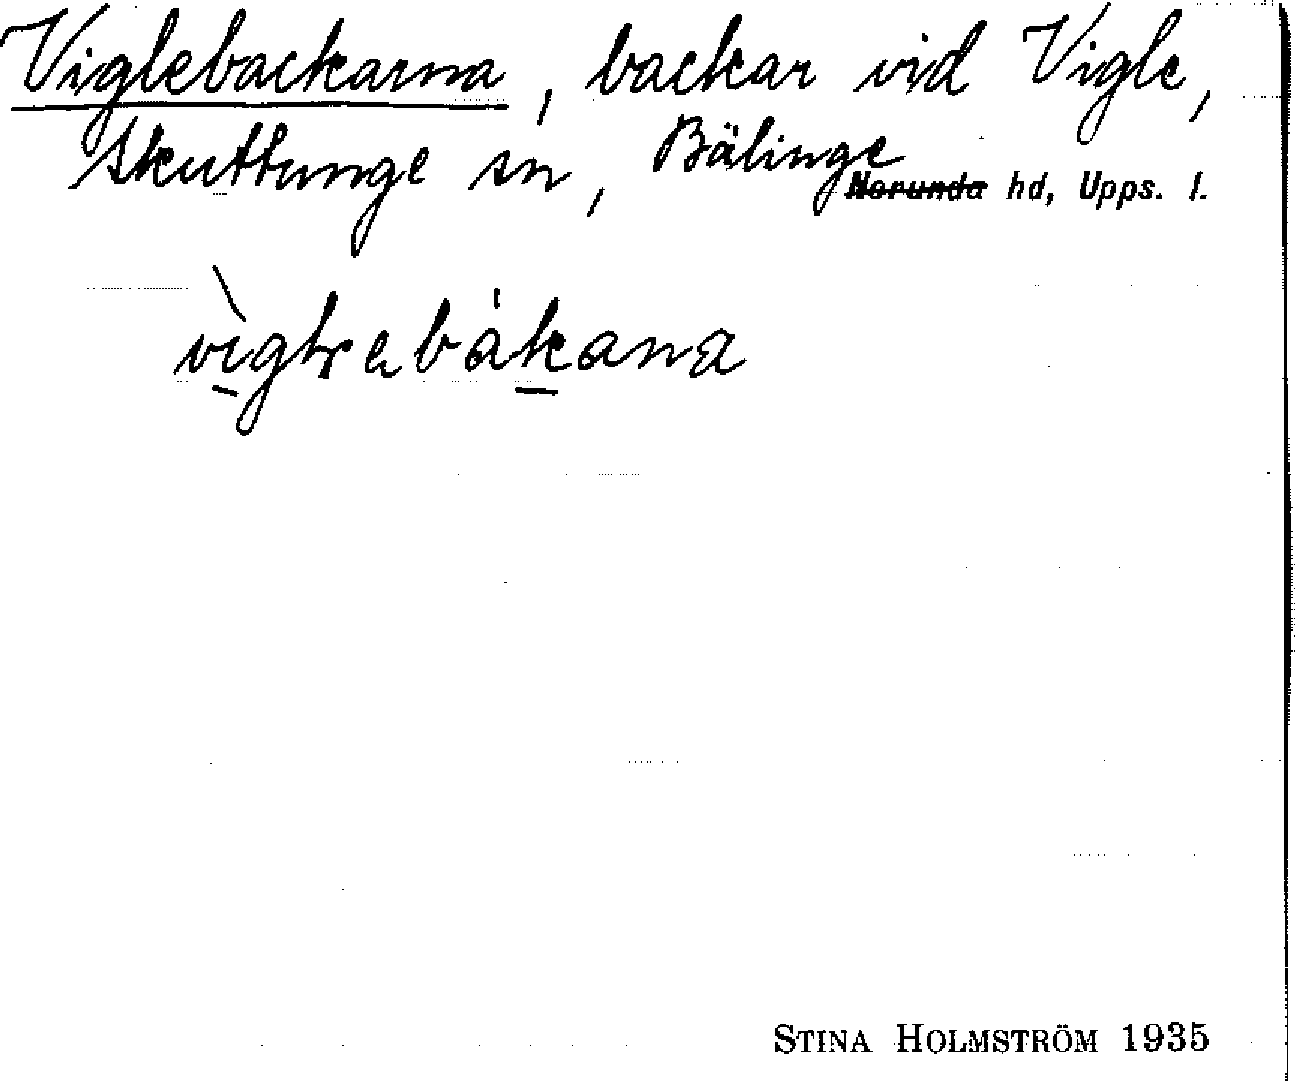 Viglebackarna, backar vid Vigle,
Skuttunge sn, Bälinge
Norunda hd, Upps. l.
STINA HOLMSTRÖM 1935